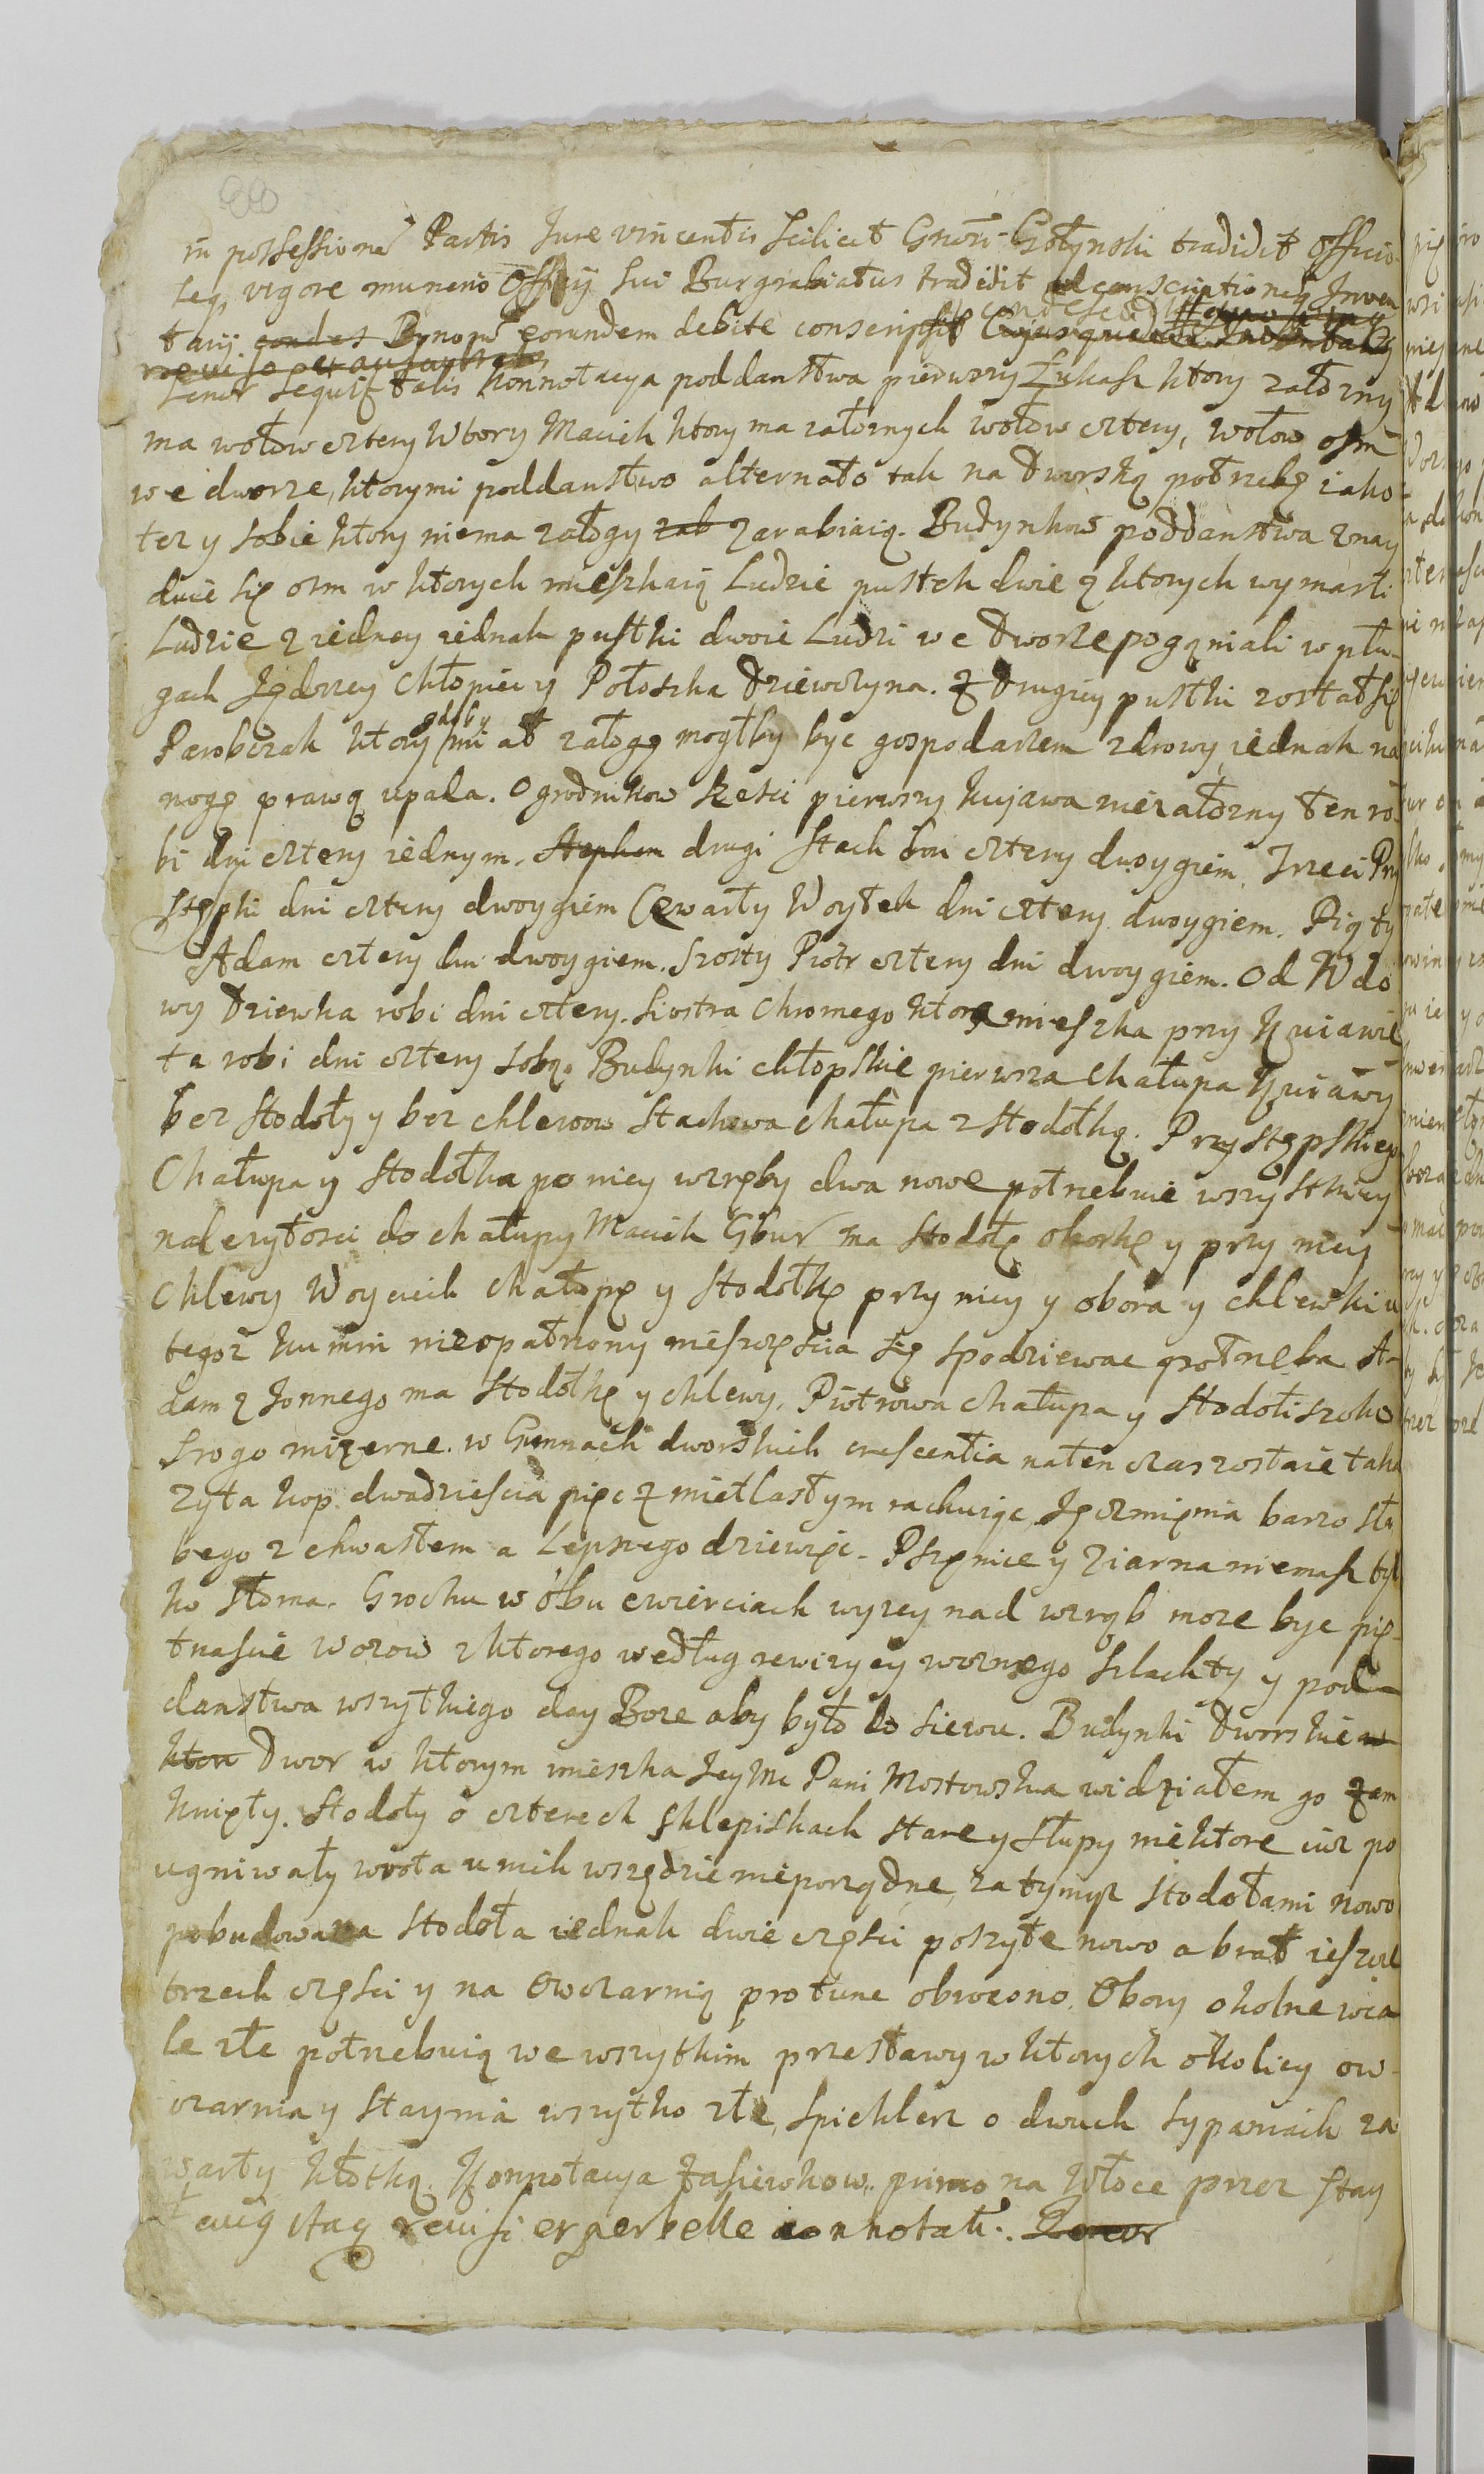 in possessionē Partis Jure vincentis Scilicet Gnōri Grotynski tradidit Officio
seq, vigore muneris Officij sui Burgrabiatus tradidit ad conscriptionēq Inven
condescen
tarij eorundem debite conscripsit
Tenor sequit talis Konnotacya poddanstwa pierwszy Łukasz ktory załozny
ma wołow cztery Wtory Maciek ktory ma załoznych wołow cztery, wołow osm
we dworze, ktorymi poddanstwo alternato tak na Dworską potrzebę iako
tez y sobie ktory niema załogy zab zarabiaią. Budynkow poddanstwa znay
duie się osm w ktorych mieszkaią Ludzie pustek dwie z ktorych wymarli
Ludzie z iedney iednak pustki dwoie Ludzi we Dworze poganiali w płu-
gach Jędrzey chłopiec y Połoszka Dziewczyna. Z Drugiey pustki zostałsię
Parobczak ktory gdyby miał załogę mogłby byc gospodarzem zdrowy, iednak na
nogę prawą upada. Ogrodnikow szesci pierwszy Kujawa niezałozny ten ro-
bi dni cztery iednym. Stephan drugi Stach dni cztery dwoygiem, Trzeci Prz
stępski dni cztery dwoygiem Czwarty Woytek dni cztery dwoygiem. Piąty
Adam cztery dni dwoygiem. Szosty Piotr cztery dni dwoygiem. Od Wdo
wy Dziewka robi dni cztery. Siostra chromego ktora mieszka przy Kuiawie
ta robi dni cztery sobą. Budynki chłopskie pierwsza chałupa Kuiawy
bez stodoły y bez chlewow Stachowa chałupa z stodołką. Przystępskiego
Chałupa y stodołka po niey wzręby dwa nowe potrzebuie wszystkiey
nalezytosci do chałupy Maciek Gbur ma stodołę oborkę y przy niey
chlewy Woyciech chałupę y stodołkę przy niey y obora y chlewki u
tegoz kumin nieopatrzony nieszczęscia się spodziewac potrzeba A-
dam z Jonnego ma stodołkę y chlewy, Piotrowa chałupa y stodoliszcko
srogo mizerne. w Gumnach dworskich crescentia naten czas zostaie taka
zyta kop. dwadziescia pięc z mietlastym rachuiąc Jęczmięnia barzo sła
bego z chwastem a Lepszego dziewięc. Pszęnice y ziarna niemasz tyl
ko słoma. Grochu w obu cwierciach wyzey nad wzrąb moze byc pię-
tnascie wozow z ktorego według rewizyey woznego szlachty y pod-
danstwa wszytkiego day Boze aby było do siewu. Budynki Dworskie w
ktore Dwor w ktorym mieszka Jey Mc Pani Mostowska widziałem go zam
knięty. Stodoły o czterech sklepiskach stare y słupy niektore iuz po
ugniwały wrota u nich wszędzie nieporządne, za tymysz stodołami nowo
pobudowana stodoła iednak dwie częsci poszyte nowo a brak ieszcze
trzech częsci y na Owczarnią protunc obrocono. Obory okolne wca
le złe potrzebuią we wszytkim przestawy w ktorych okolicy ow-
czarnia y staynia wszytko złe, spichlerz o dwuch sypaniach za
warty kłotką. Konnotacya Zasiewkow. primo na Włoce przez stay